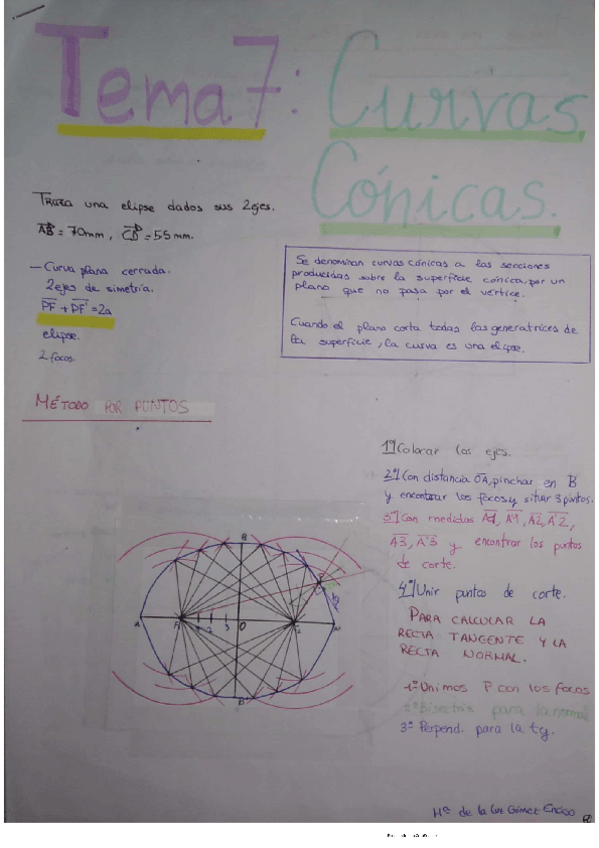 Tema 7: Curvas
Cónicas.
Traza una elipse dados sus 2 ejes.
AB = 70mm, CD = 55 mm.
— Curva plana cerrada.
2 ejes de simetría.
PF + PF' = 2a
elipse.
2 focos
Se denominan curvas cónicas a las secciones
producidas sobre la superficie cónica, por un
plano que no pasa por el vértice.
Cuando el plano corta todas las generatrices de
la superficie, la curva es una elipse.
MÉTODO POR PUNTOS
1º) Colocar los ejes.
2º) Con distancia OA, pinchar en B
y encontrar los focos y situar 3 puntos.
3º) Con medidas A1, A'1, A2, A'2,
A3, A'3 y encontrar los puntos
de corte.
4º) Unir puntos de corte.
PARA CALCULAR LA
RECTA TANGENTE Y LA
RECTA NORMAL.
1º Unimos P con los focos
2º Bisectriz para la normal
3º Perpend. para la tg.
B
P
A
F1
2
3
O
F2
A'
B'
Mª de la Luz Gómez Enciso